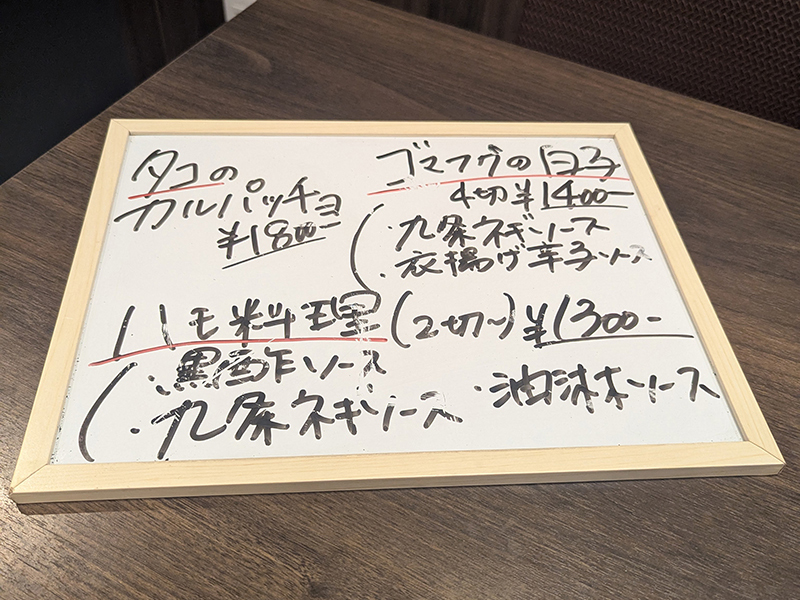 タコの
カルパッチョ
¥1800-
ゴマフグの白子
4切¥1400-
・九条ネギソース
・衣揚げ辛子ソース
ハモ料理(2切〜)¥1300-
・黒酢ソース
・九条ネギソース
・油淋ソース